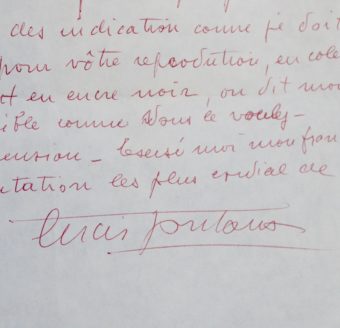 des indication comme je doit
pour vôtre reprodution, en cole
et en encre noir, ou dit moi
ible comme vous le voulez -
ension - Excusé moi mon fran
utation les plus cordial de
Lucio Fontana